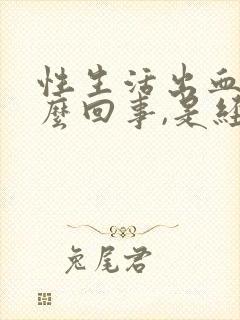 性生活出血
麼回事,是經
兔尾君